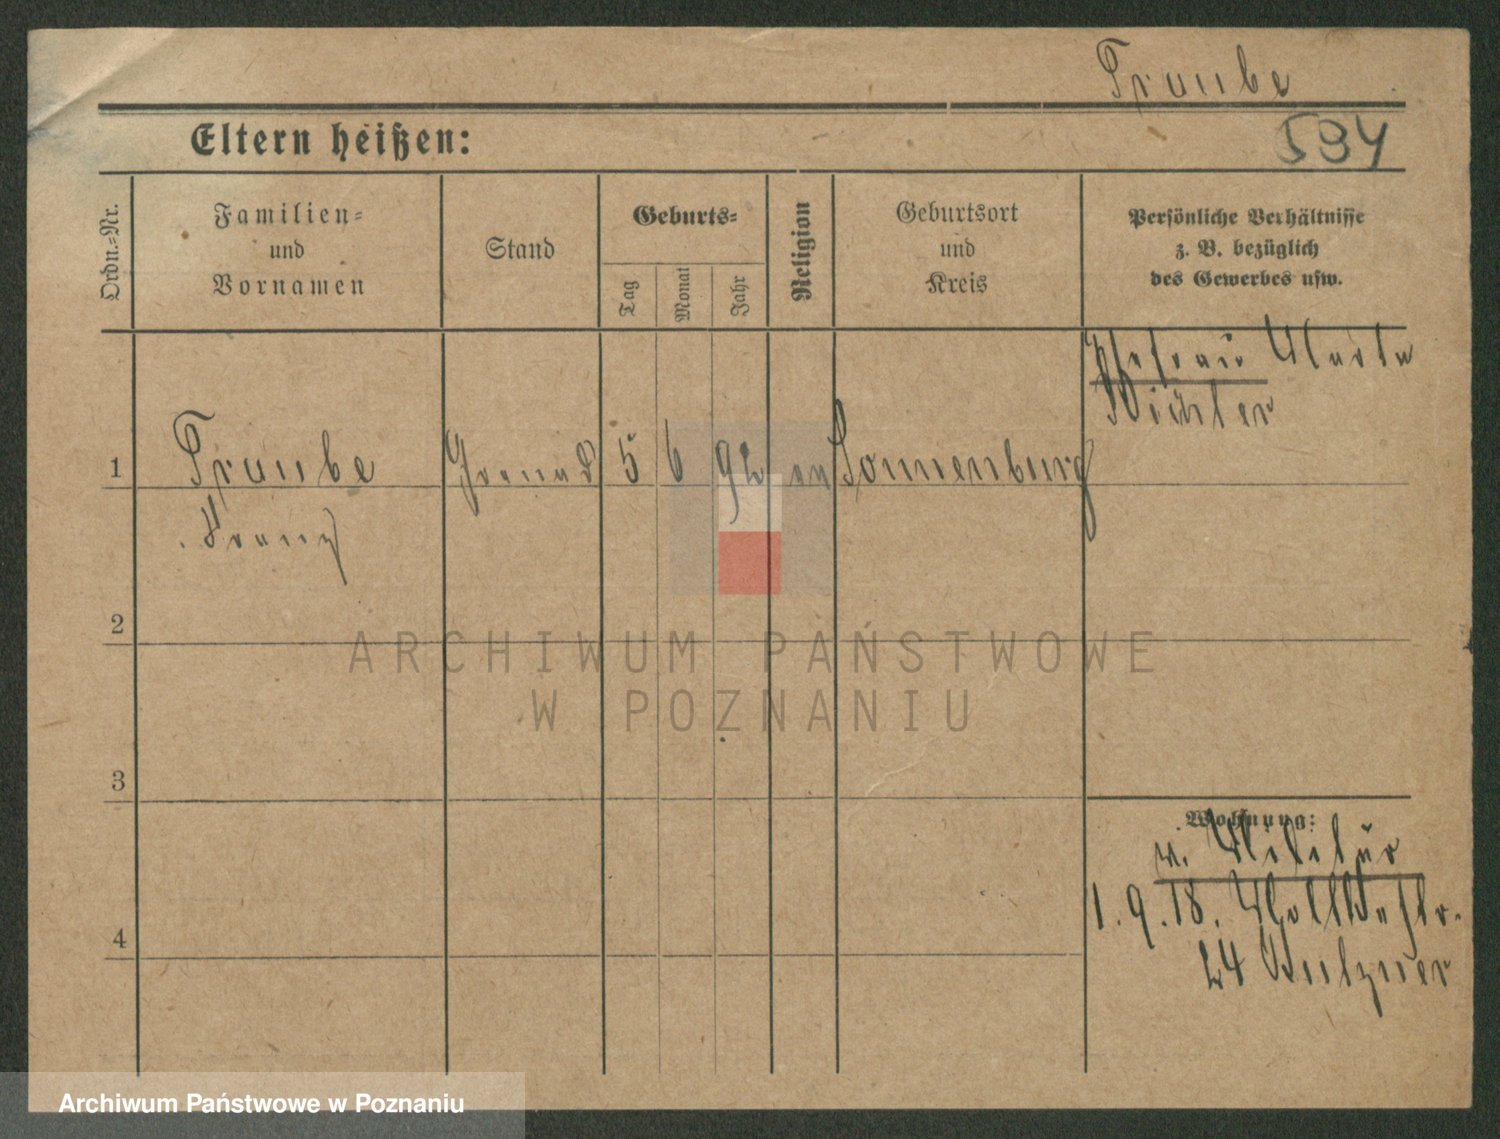 Traube
594
Eltern heißen:
Ordn.=Nr.
Familien=
und
Vornamen
Stand
Geburts=
Tag
Monat
Jahr
Religion
Geburtsort
und
Kreis
Persönliche Verhältnisse
z. B. bezüglich
des Gewerbes usw.
Ehefrau Marta
Richter
1 Traube 5 6 92 ev Sonnenburg
Franz
2
3
4
Wohnung:
v. Militär
1.9.18.
24
ARCHIWUM PAŃSTWOWE
W POZNANIU
Archiwum Państwowe w Poznaniu